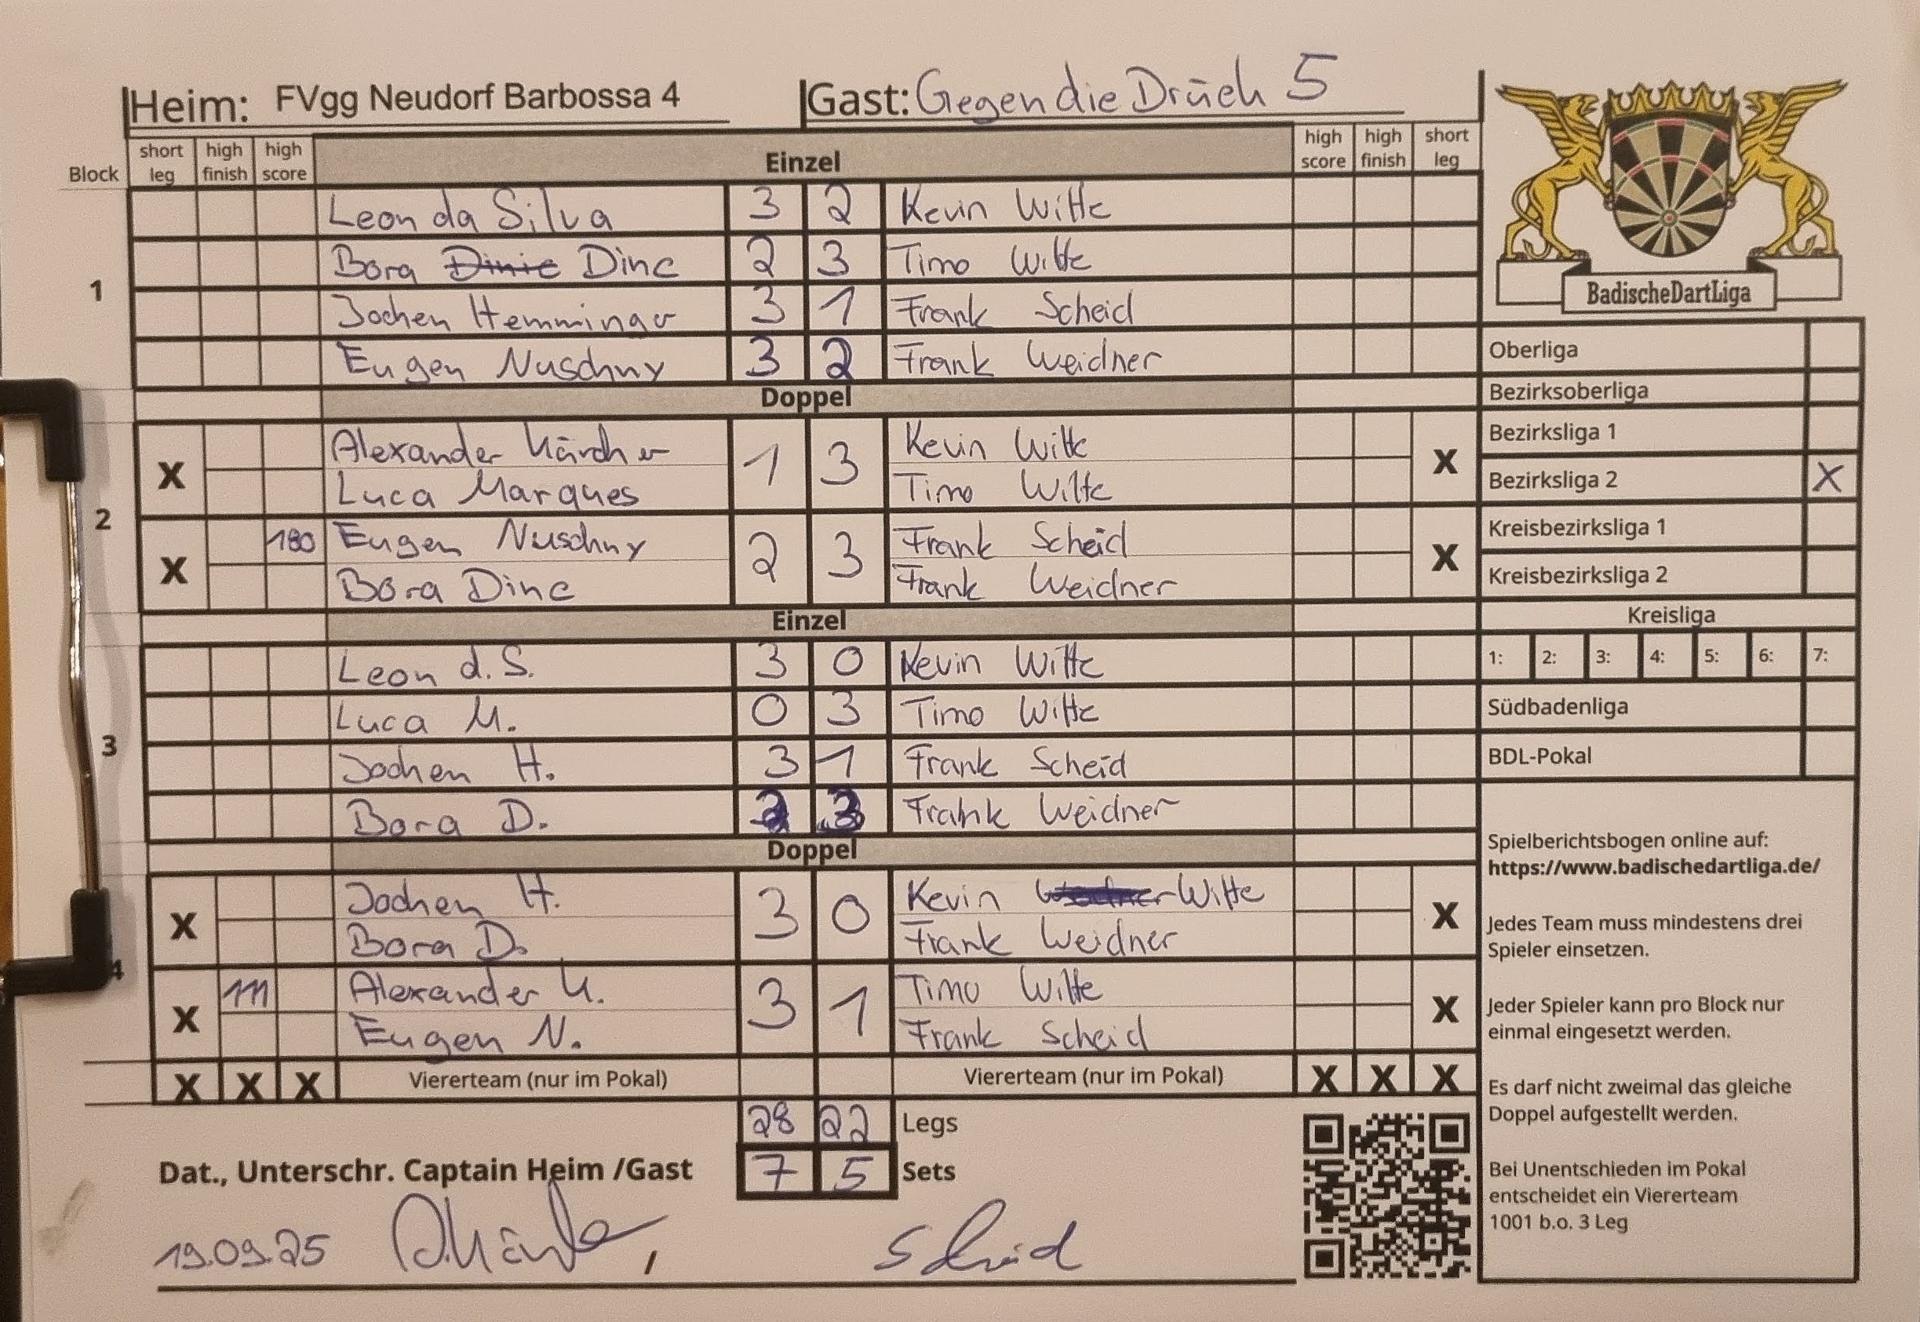 Heim: FVgg Neudorf Barbossa 4 Gast: Gegen die Drück 5
Block short leg high finish high score Einzel high score high finish short leg
1
Leon da Silva 3 2 Kevin Witte
Bora Dinic Dinc 2 3 Timo Witte
Jochen Hemminger 3 1 Frank Scheid
Eugen Nuschny 3 2 Frank Weidner
Doppel
2
X Alexander Kärcher 1 3 Kevin Witte X
Luca Marques Timo Witte
X 180 Eugen Nuschny 2 3 Frank Scheid X
Bora Dinc Frank Weidner
Einzel
3
Leon d. S. 3 0 Kevin Witte
Luca M. 0 3 Timo Witte
Jochen H. 3 1 Frank Scheid
Bora D. 2 3 Frank Weidner
Doppel
4
X Jochen H. 3 0 Kevin Witte X
Bora D. Frank Weidner
X 111 Alexander K. 3 1 Timo Witte X
Eugen N. Frank Scheid
X X X Viererteam (nur im Pokal) Viererteam (nur im Pokal) X X X
28 22 Legs
Dat., Unterschr. Captain Heim /Gast 7 5 Sets
19.09.25 Scheid
BadischeDartLiga
Oberliga
Bezirksoberliga
Bezirksliga 1
Bezirksliga 2 X
Kreisbezirksliga 1
Kreisbezirksliga 2
Kreisliga
1: 2: 3: 4: 5: 6: 7:
Südbadenliga
BDL-Pokal
Spielberichtsbogen online auf:
https://www.badischedartliga.de/
Jedes Team muss mindestens drei
Spieler einsetzen.
Jeder Spieler kann pro Block nur
einmal eingesetzt werden.
Es darf nicht zweimal das gleiche
Doppel aufgestellt werden.
Bei Unentschieden im Pokal
entscheidet ein Viererteam
1001 b.o. 3 Leg